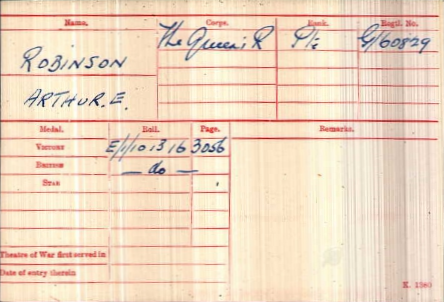 Name. Corps. Rank. Regtl. No.
ROBINSON The Queen's R Pte G/60829
ARTHUR. E.
Medal. Roll. Page. Remarks.
VICTORY E/1/10 13 16 3056
BRITISH — do —
STAR
Theatre of War first served in
Date of entry therein
K. 1380